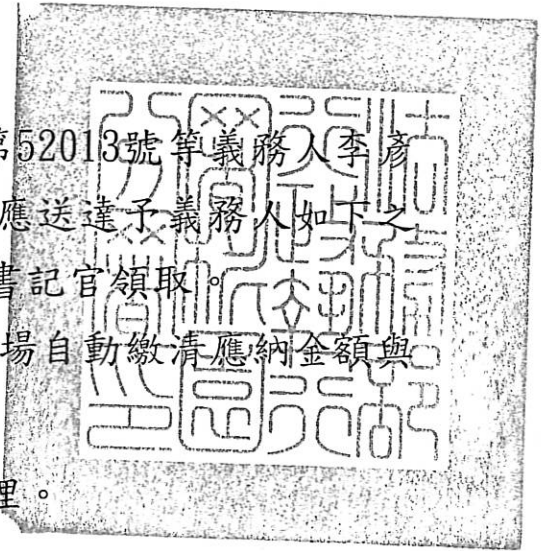 第52013號等義務人李彥
應送達予義務人如下之
書記官領取。
場自動繳清應納金額與
理。